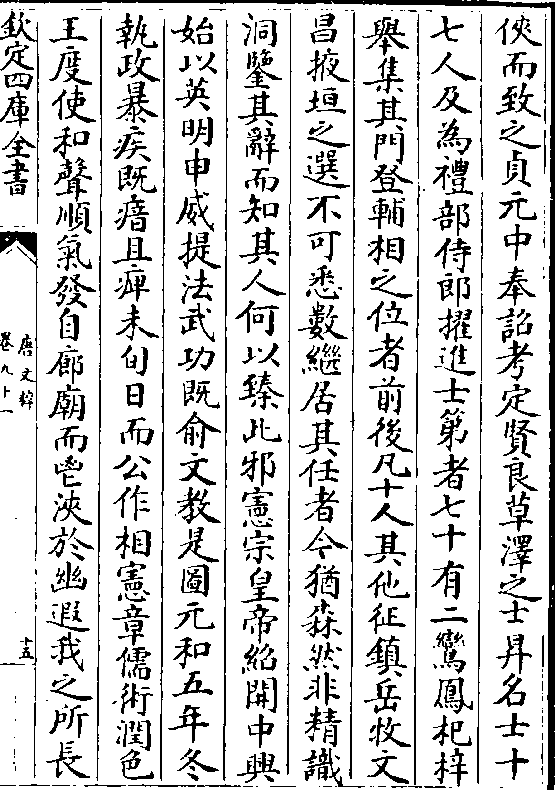 俠而致之貞元中奉詔考定賢良草澤之士昇名士十
七人及為禮部侍郎擢進士第者七十有二鸞鳳杞梓
舉集其門登輔相之位者前後凡十人其他征鎮岳牧文
昌掖垣之選不可悉數繼居其任者今猶森然非精識
洞鑒其辭而知其人何以臻此邪憲宗皇帝紹開中興
始以英明申威提法武功既俞文教是圖元和五年冬
執政暴疾既瘖且痺未旬日而公作相憲章儒術潤色
王度使和聲順氣發自廊廟而鬯浹於幽遐我之所長
欽定四庫全書
唐文粹
卷九十一
十五